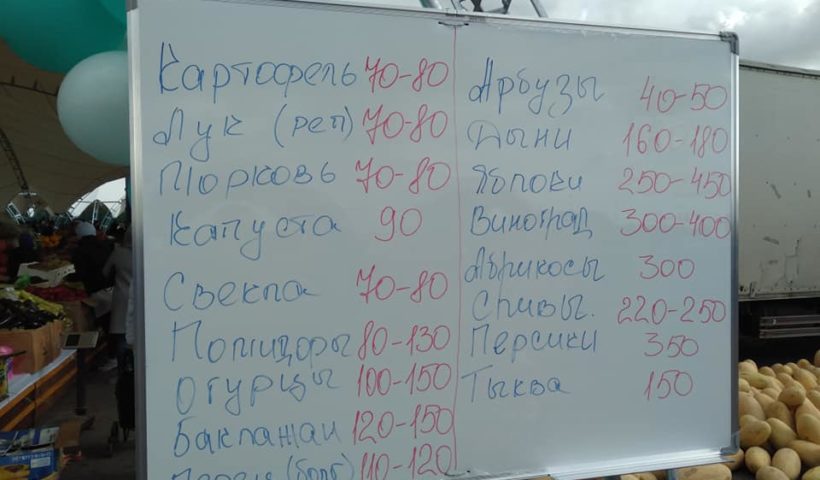 Картофель 70-80
Лук (реп) 70-80
Морковь 70-80
Капуста 90
Свекла 70-80
Помидоры 80-130
Огурцы 100-150
Баклажан 120-150
Перец (болг) 110-120
Арбузы 40-50
Дыни 160-180
Яблоки 250-450
Виноград 300-400
Абрикосы 300
Сливы. 220-250
Персики 350
Тыква 150